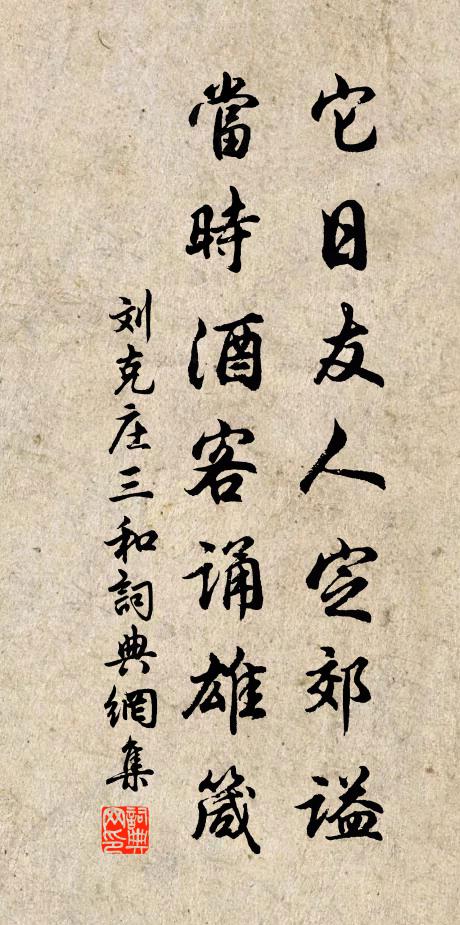 它日友人定郊谥
當時酒客誦雄箴
刘克庄三和詞典網集
詞典网印